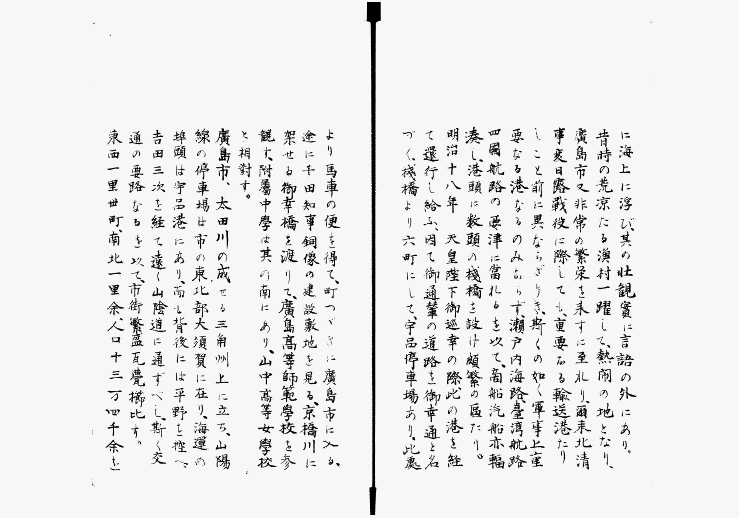 に海上に浮び、其の壮観實に言語の外にあり。
昔時の荒凉たる漁村一躍して、熱閙の地となり、
廣島市又非常の繁栄を来すに至れり、爾来北清
事変日露戦役に際しても、重要なる輸送港たり
しこと前に異ならざりき、斯くの如く軍事上重
要なる港なるのみならず、瀬戸内海路臺湾航路
四國航路の要津に當れるを以て、商船汽船亦輻
湊し、港頭に数頭の桟橋を設け頗繁の區たり。
明治十八年 天皇陛下御巡幸の際此の港を経
て還行し給ふ、因て御通輦の道路を御幸通と名
づく、桟橋より六町にして、宇品停車場あり、此處
より馬車の便を得て、町つゞきに廣島市に入る、
途に千田知事銅像の建設敷地を見る、京橋川に
架せる御幸橋を渡りて、廣島高等師範學校を参
観す、附屬中學は其の南にあり、山中高等女學校
と相對す。
廣島市、太田川の成せる三角州上に立ち、山陽
線の停車場は市の東北部大須賀に在り、海運の
埠頭は宇品港にあり、而も背後には平野を控へ、
吉田三次を経て遠く山陰道に通ずべし、斯く交
通の要路なるを以て、市街繁盛瓦甍櫛比す。
東西一里廿町、南北一里余、人口十三万四千余を